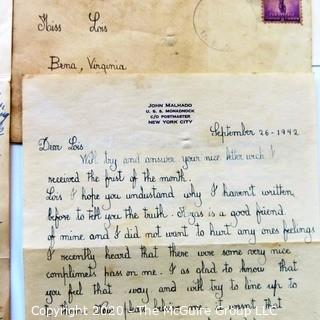 Miss Lois
Bena, Virginia
JOHN MALHADO
U. S. S. MONADNOCK
C/O POSTMASTER
NEW YORK CITY
September 26-1942
Dear Lois
Will try and answer your nice letter wich I
received the frist of the month.
Lois I hope you undustand why I havent written
before to tell you the truth. is a good friend
of mine and I did not want to hurt any ones feelings
I recently heard that there were some very nice
complimets pass on me. I as glad to know that
you feel that way and will try to live up to
it wasnt that
Copyright 2020 - The McGuire Group